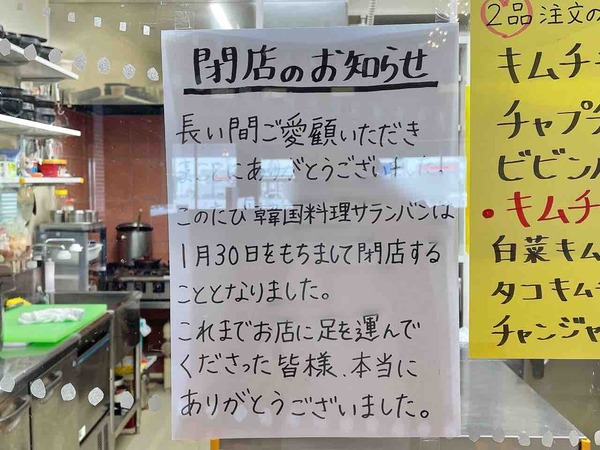 閉店のお知らせ
長い間ご愛顧いただき
まことにありがとうございました
このたび韓国料理サランバンは
1月30日をもちまして閉店する
こととなりました。
これまでお店に足を運んで
くださった皆様、本当に
ありがとうございました。
2品注文の
キムチ
チャプチ
ビビン
・キムチ
白菜キム
タコキムチ
チャンジャ